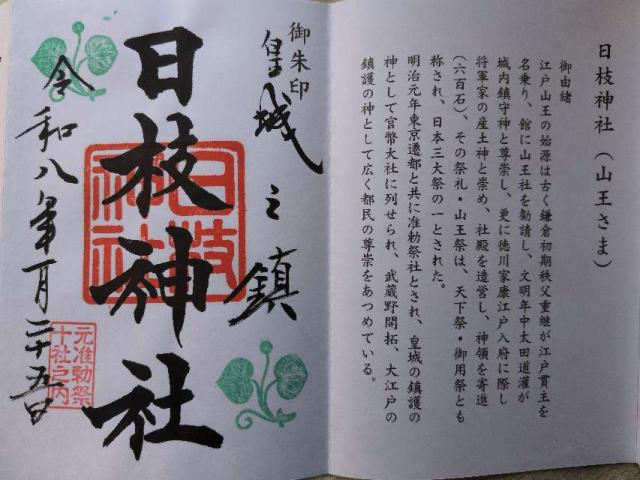 日枝神社(山王さま)
御由緒
江戸山王の始源は古く鎌倉初期秩父重継が江戸貫主を
名乗り、館に山王社を勧請し、文明年中太田道灌が
城内鎮守神と尊崇し、更に徳川家康江戸入府に際し
将軍家の産土神と崇め、社殿を造営し、神領を寄進
(六百石)、その祭礼・山王祭は、天下祭・御用祭とも
称され、日本三大祭の一とされた。
明治元年東京遷都と共に准勅祭社とされ、皇城の鎮護の
神として官幣大社に列せられ、武蔵野開拓、大江戸の
鎮護の神として広く都民の尊崇をあつめている。
御朱印
皇城之鎮
日枝神社
日枝
神社
令和八年一月二十五日
元准勅祭
十社之内